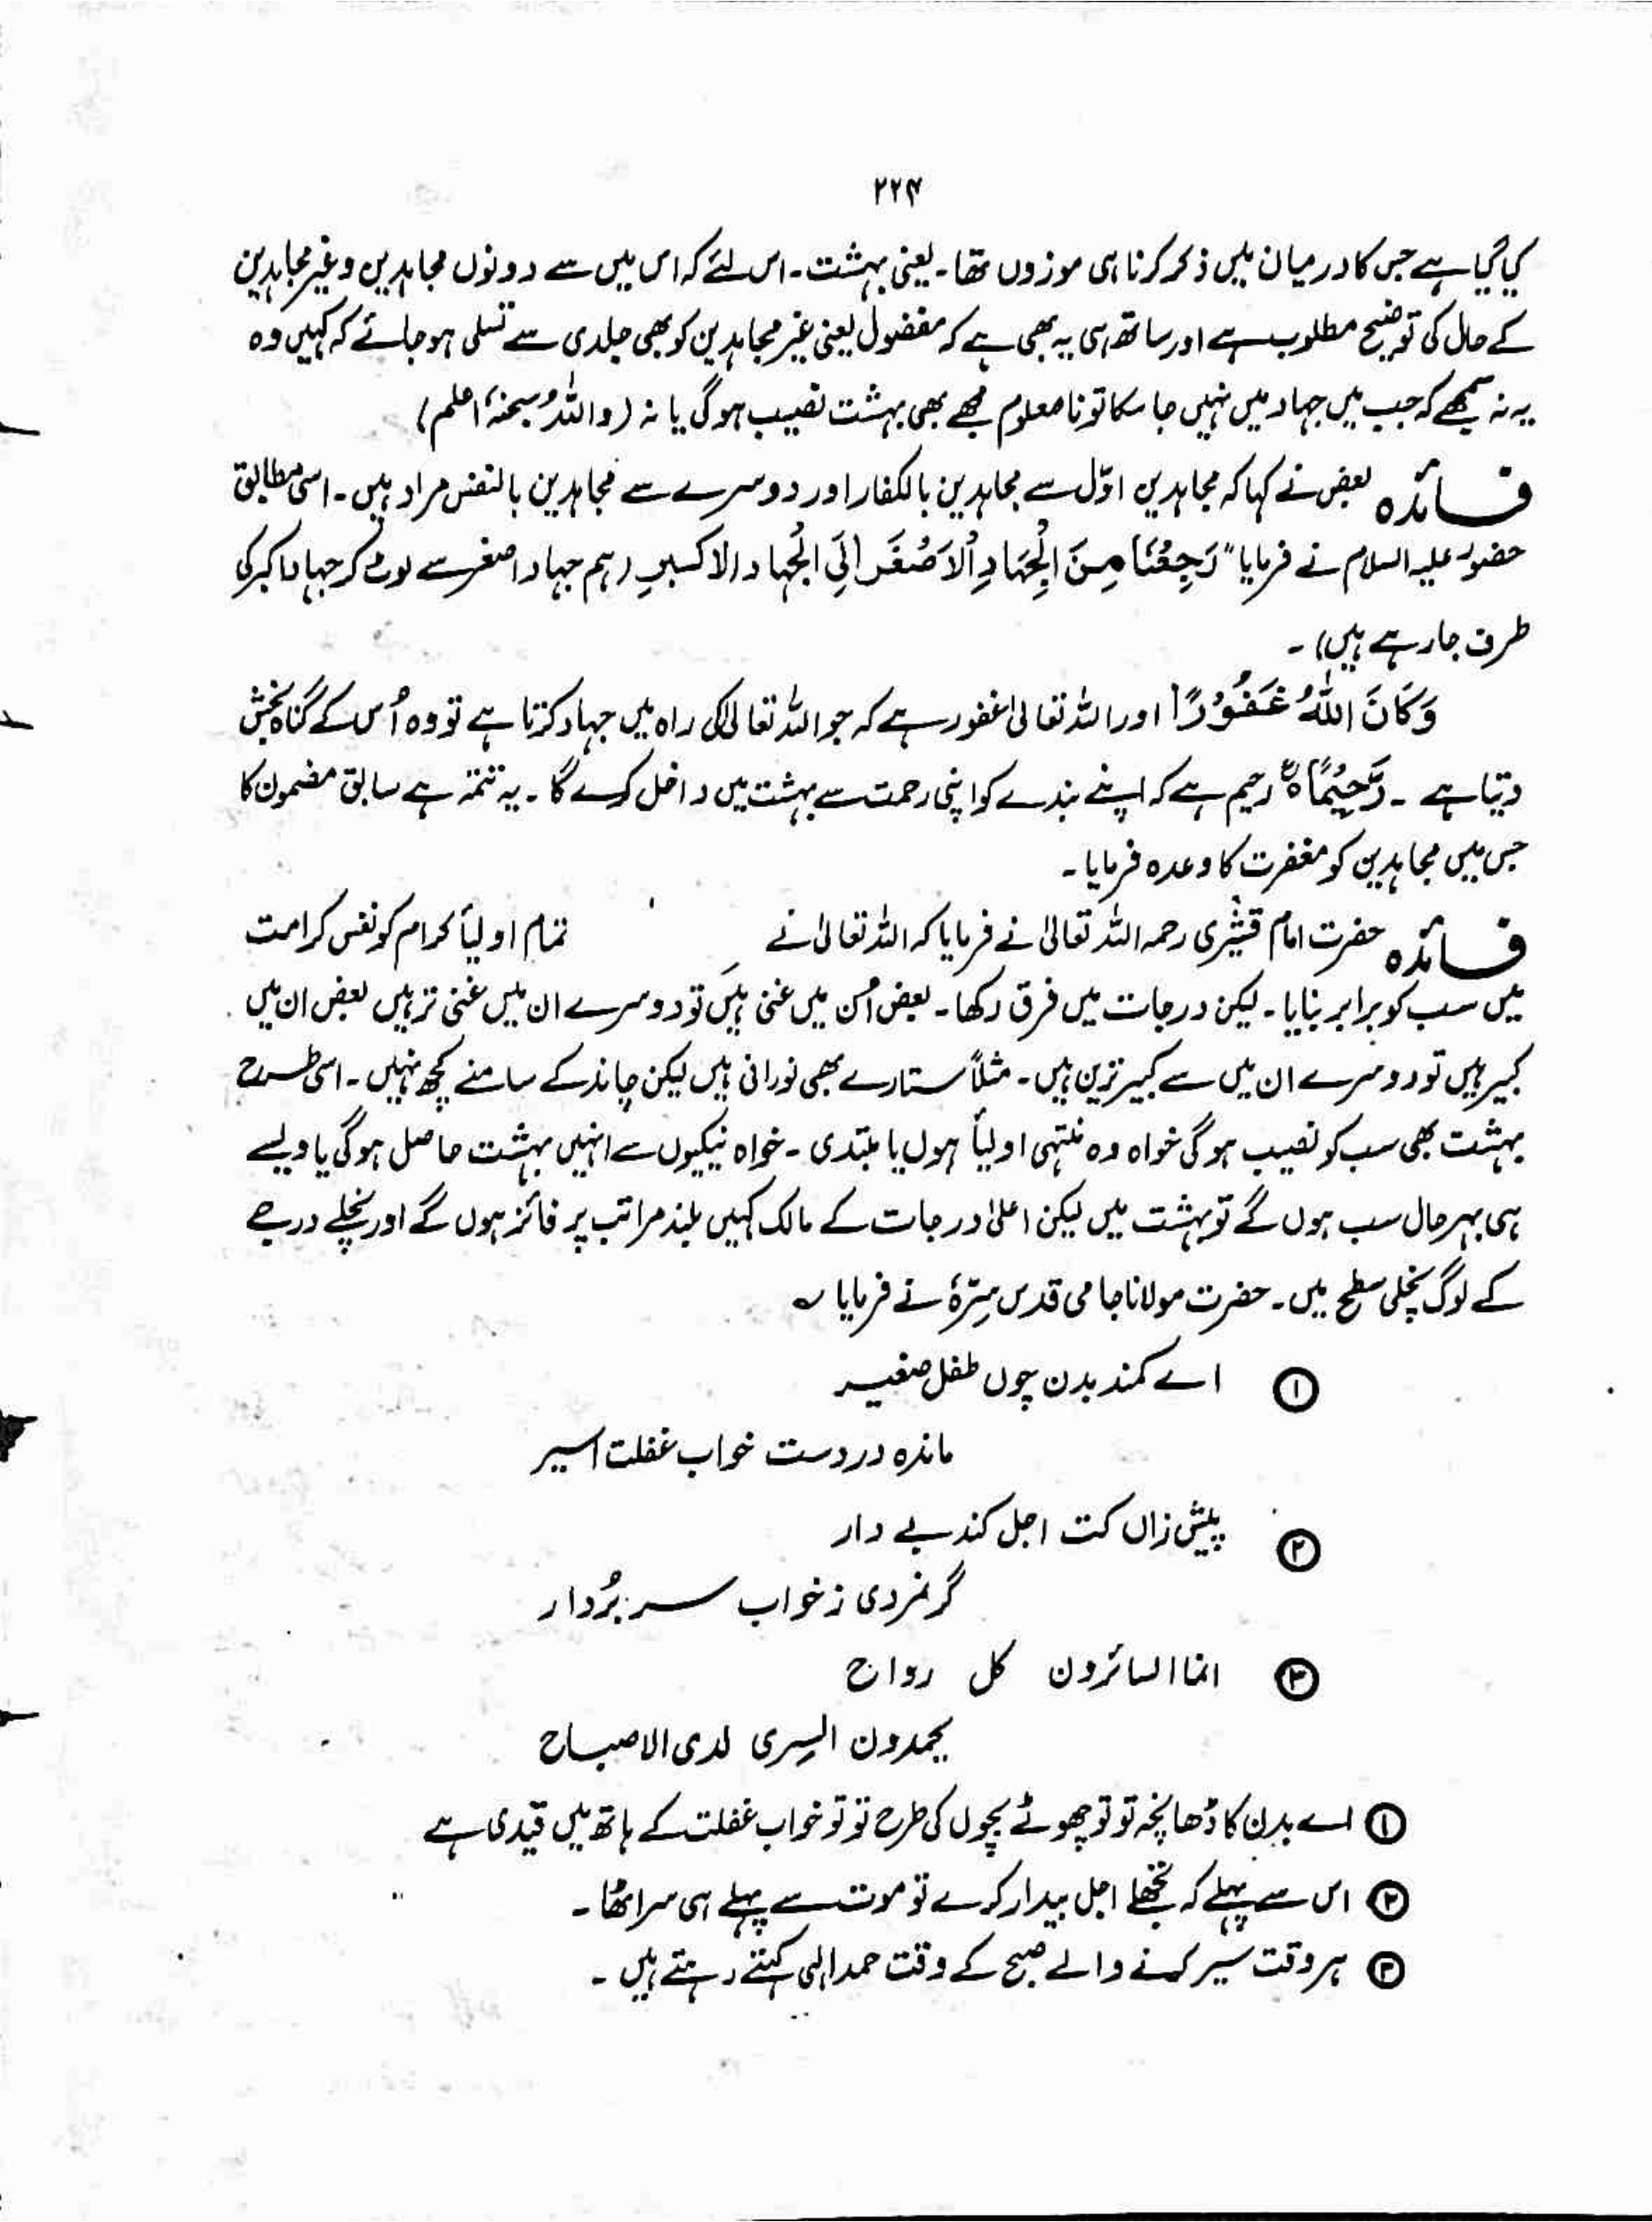 ۲۲۴
کیا گیا ہے جس کا درمیان میں ذکر کرنا ہی موزوں تھا۔ یعنی بہشت۔ اس لئے کہ اس میں سے دونوں مجاہدین و غیر مجاہدین
کے حال کی توضیح مطلوب ہے اور ساتھ ہی یہ بھی ہے کہ مفضول یعنی غیر مجاہدین کو بھی جلدی سے تسلی ہو جائے کہ کہیں وہ
یہ نہ سمجھے کہ جب میں جہاد میں نہیں جا سکا تو نامعلوم مجھے بھی بہشت نصیب ہوگی یا نہ (واللہُ سبحنہٗ اعلم)
فائدہ بعض نے کہا کہ مجاہدین اوّل سے مجاہدین بالکفار اور دوسرے سے مجاہدین بالنفس مراد ہیں۔ اسی مطابق
حضور علیہ السلام نے فرمایا "رَجِعْنَا مِنَ الْجِهَادِ الْاَصْغَرِ اِلَی الْجِهادِ الاکبرِ (ہم جہاد اصغر سے لوٹ کر جہاد اکبر کی
طرف جا رہے ہیں)۔
وَكَانَ اللّٰهُ غَفُوْرًا اور اللہ تعالیٰ غفور ہے کہ جو اللہ تعالیٰ کی راہ میں جہاد کرتا ہے تو وہ اُس کے گناہ بخش
دیتا ہے ۔ رَّحِیْمًا ہ رحیم ہے کہ اپنے بندے کو اپنی رحمت سے بہشت میں داخل کرے گا ۔ یہ تتمّہ ہے سابق مضمون کا
جس میں مجاہدین کو مغفرت کا وعدہ فرمایا ۔
فائدہ حضرت امام قشیری رحمہ اللہ تعالیٰ نے فرمایا کہ اللہ تعالیٰ نے تمام اولیأ کرام کو نفس کرامت
میں سب کو برابر بنایا ۔ لیکن درجات میں فرق رکھا ۔ بعض اُن میں غنی ہیں تو دوسرے ان میں غنی تر ہیں بعض ان میں
کبیر ہیں تو دوسرے ان میں سے کبیر ترین ہیں ۔ مثلاً ستارے بھی نورانی ہیں لیکن چاند کے سامنے کچھ نہیں ۔ اسی طرح
بہشت بھی سب کو نصیب ہوگی خواہ وہ منتہی اولیأ ہوں یا مبتدی ۔ خواہ نیکیوں سے انہیں بہشت حاصل ہوگی یا ویسے
ہی بہرحال سب ہوں گے تو بہشت میں لیکن اعلیٰ درجات کے مالک کہیں بلند مراتب پر فائز ہوں گے اور نچلے درجے
کے لوگ نچلی سطح میں ۔ حضرت مولانا جامی قدس سِرّہٗ نے فرمایا ؎
① اے کمند بدن چوں طفل صغیر
ماندہ در دست خواب غفلت اسیر
② پیش زاں کت اجل کند بے دار
گر نمردی ز خواب سر بُردار
③ انما السائرون کل رواح
یحمدون السری لدی الاصباح
① اے بدن کا ڈھانچہ تو تو چھوٹے بچوں کی طرح تو تو خواب غفلت کے ہاتھ میں قیدی ہے
② اس سے پہلے کہ تجھے اجل بیدار کرے تو موت سے پہلے ہی سر اٹھا ۔
③ ہر وقت سیر کرنے والے صبح کے وقت حمد الٰہی کہتے رہتے ہیں ۔